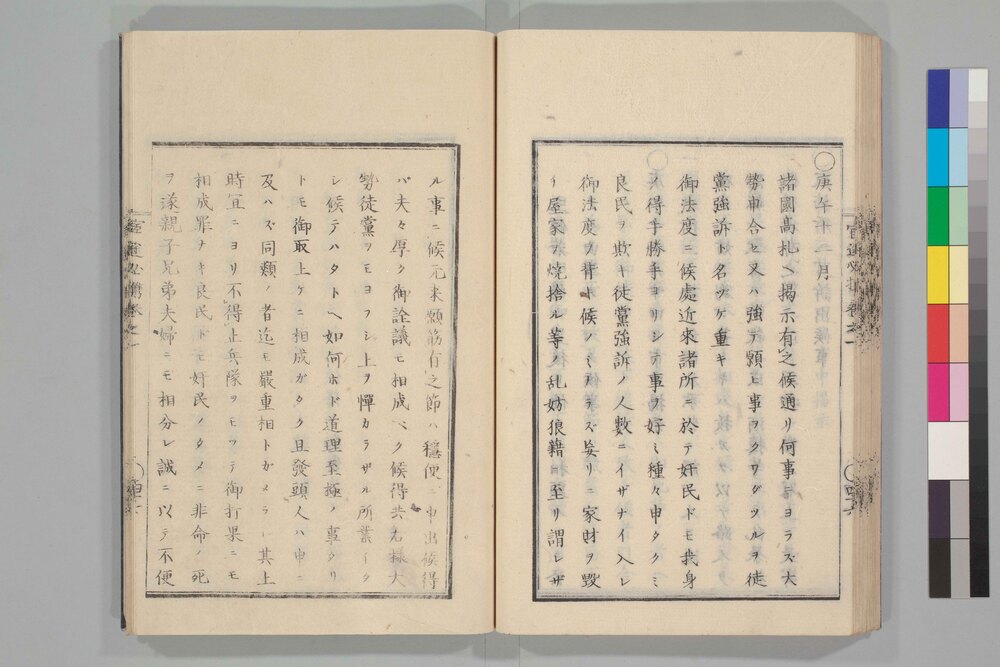 ○庚午十二月
諸國高札ヘ揭示有之候通リ何事ニヨラズ大
勢申合セ又ハ強テ願ヒ事ヲクワダツルヲ徒
黨強訴トヵ名ツケ重キ
御法度ニ候處近來諸所ニ於テ奸民ドモ我身
ノ得手勝手ヨリシテ事ヲ好ミ種々申タクミ
良民ヲ欺キ徒黨強訴ノ人數ニイザナイ入レ
御法度ヲ背キ候ノミナラズ妄リニ家財ヲ毀
チ屋家ヲ燒拾ル等ノ乱妨狼藉ニ至リ謂レザ
ル事ニ候元来願筋有之節ハ穩便ニ申出候得
バ夫々厚ク御詮議モ相成ベク候得共右樣大
勢徒黨ヲモヨフシ上ヲ憚カラザル所業イタ
シ候テハタトヘ如何ホド道理至極ノ事タリ
トモ御取上ケニ相成ガタク且發頭人ハ申ニ
及ハズ同類ノ者迄モ嚴重相トガメラレ其上
時宜ニヨリ不得止兵隊ヲモツテ御打果ニモ
相成罪ナキ良民ドモ奸民ノタメニ非命ノ死
ヲ遂親子兄弟夫婦ニモ相分レ誠ニ以テ不便